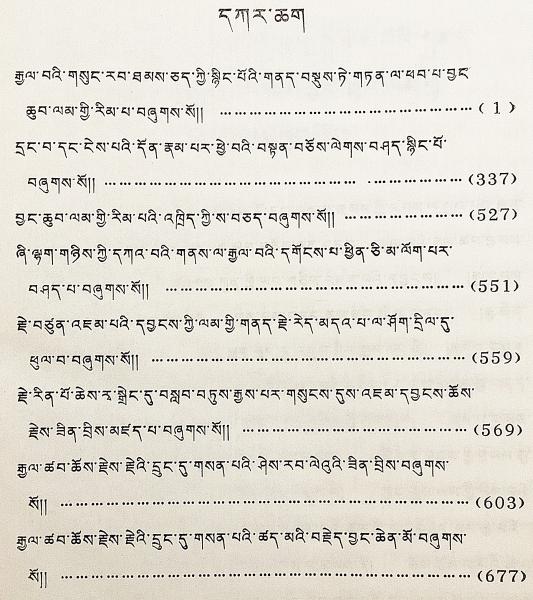 དཀར་ཆག
རྒྱལ་བའི་གསུང་རབ་ཐམས་ཅད་ཀྱི་སྙིང་པོའི་གནད་བསྡུས་ཏེ་གཏན་ལ་ཕབ་པ་བྱང་
ཆུབ་ལམ་གྱི་རིམ་པ་བཞུགས་སོ།། ……………………………………… ( 1 )
དྲང་བ་དང་ངེས་པའི་དོན་རྣམ་པར་ཕྱེ་བའི་བསྟན་བཅོས་ལེགས་བཤད་སྙིང་པོ་
བཞུགས་སོ།། …………………………………… ……………… (337)
བྱང་ཆུབ་ལམ་གྱི་རིམ་པའི་འཁྲིད་ཀྱི་ས་བཅད་བཞུགས་སོ།། ………………… (527)
ཞི་ལྷག་གཉིས་ཀྱི་དཀའ་བའི་གནས་ལ་རྒྱལ་བའི་དགོངས་པ་ཕྱིན་ཅི་མ་ལོག་པར་
བཤད་པ་བཞུགས་སོ།། ……………………………………………… (551)
རྗེ་བཙུན་འཇམ་པའི་དབྱངས་ཀྱི་ལམ་གྱི་གནད་རྗེ་རེད་མདའ་པ་ལ་ཤོག་དྲིལ་དུ་
ཕུལ་བ་བཞུགས་སོ།། ………………………………………………… (559)
རྗེ་རིན་པོ་ཆེས་ར་སྒྲེང་དུ་བསླབ་བཏུས་རྒྱས་པར་གསུངས་དུས་འཇམ་དབྱངས་ཆོས་
རྗེས་ཟིན་བྲིས་མཛད་པ་བཞུགས་སོ།། ………………………………… (569)
རྒྱལ་ཚབ་ཆོས་རྗེས་རྗེའི་དྲུང་དུ་གསན་པའི་ཤེས་རབ་ལེའུའི་ཟིན་བྲིས་བཞུགས་
སོ།། ………………………………………………………………… (603)
རྒྱལ་ཚབ་ཆོས་རྗེས་རྗེའི་དྲུང་དུ་གསན་པའི་ཚད་མའི་བརྗེད་བྱང་ཆེན་མོ་བཞུགས་
སོ།། ………………………………………………………………… (677)